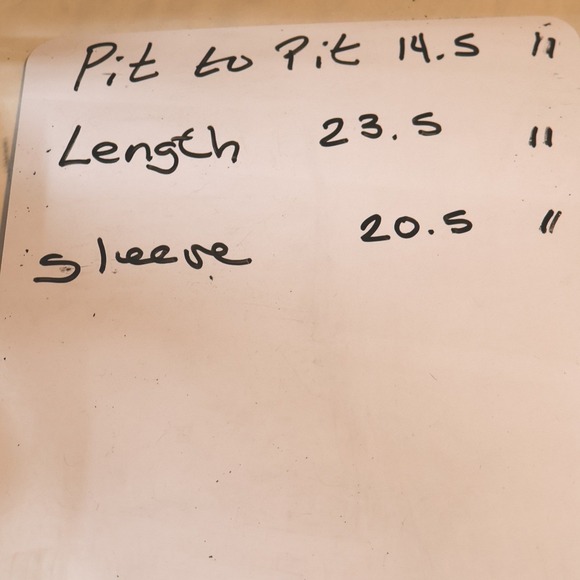 Pit to Pit 14.5 "
Length 23.5 "
Sleeve 20.5 "